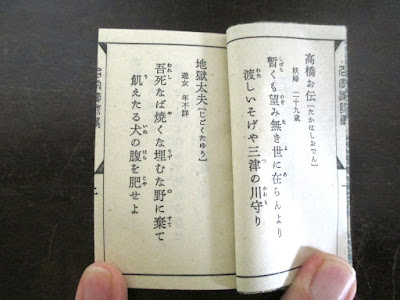 高橋お伝【たかはしおでん】
妖婦 二十九歳
暫くも望み無き世に在らんより
渡しいそげや三津の川守り
地獄太夫【じごくたゆう】
遊女 年不詳
吾死なば焼くな埋むな野に棄て
飢えたる犬の腹を肥せよ